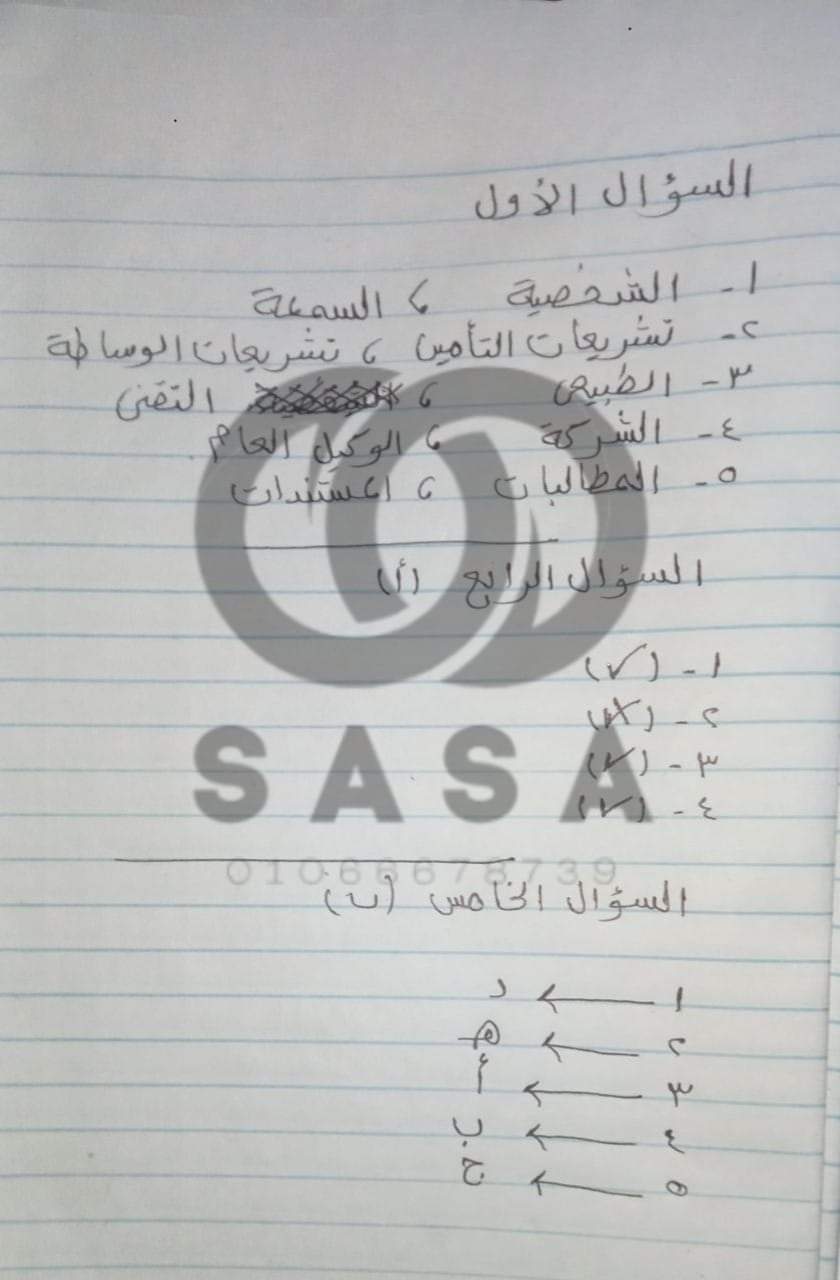 السؤال الأول
١- الشخصية ، السمعة
٢- تشريعات التأمين ، تشريعات الوساطة
٣- الطبيعى ، التقنى
٤- الشركة ، الوكيل العام
٥- المطالبات ، المستندات
السؤال الرابع (أ)
١- (✓)
٢- (✗)
٣- (✓)
٤- (✓)
SASA
01066678739
السؤال الخامس (ب)
١ ← د
٢ ← هـ
٣ ← أ
٤ ← ب
٥ ← ج